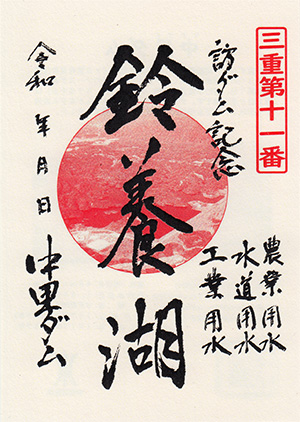 三重第十一番
訪ダム記念
農業用水
水道用水
工業用水
鈴養湖
令和 年 月 日
中里ダム